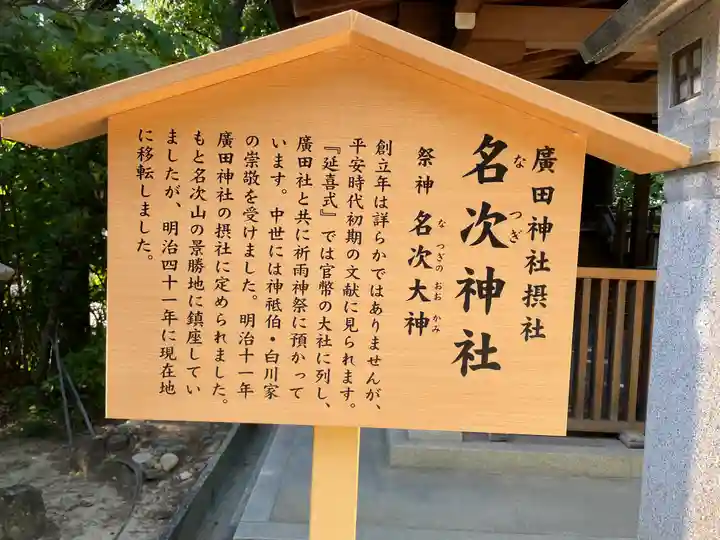 廣田神社摂社
名次神社
な つぎ
祭神 名次大神
な つぎの おお かみ
創立年は詳らかではありませんが、
平安時代初期の文献に見られます。
『延喜式』では官幣の大社に列し、
廣田社と共に祈雨神祭に預かって
います。中世には神祇伯・白川家
の崇敬を受けました。明治十一年
廣田神社の摂社に定められました。
もと名次山の景勝地に鎮座してい
ましたが、明治四十一年に現在地
に移転しました。